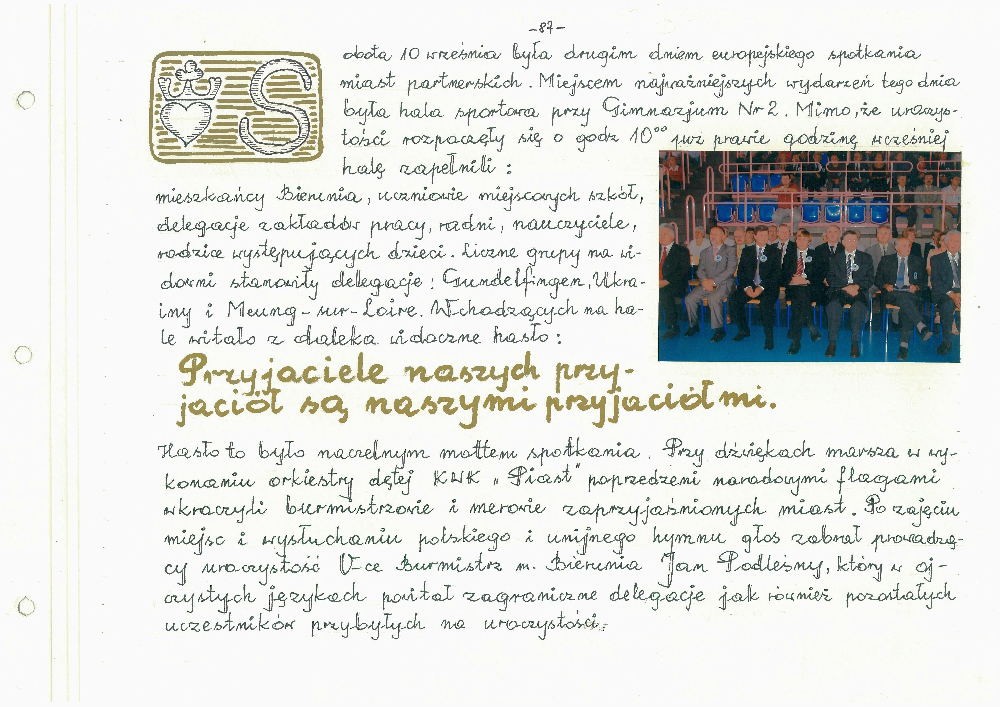 -87-
Sobota 10 września była drugim dniem europejskiego spotkania
miast partnerskich. Miejscem najważniejszych wydarzeń tego dnia
była hala sportowa przy Gimnazjum Nr 2. Mimo, że uroczys-
tości rozpoczęły się o godz 10⁰⁰ już prawie godzinę wcześniej
halę zapełnili :
mieszkańcy Bierunia, uczniowie miejscowych szkół,
delegacje zakładów pracy, radni, nauczyciele,
rodzice występujących dzieci. Liczne grupy na wi-
downi stanowiły delegacje : Gundelfingen, Ukra-
iny i Meung-sur-Loire. Wchodzących na ha-
lę witało z daleka widoczne hasło :
Przyjaciele naszych przy-
jaciół są naszymi przyjaciółmi.
Hasło to było naczelnym mottem spotkania. Przy dźwiękach marsza w wy-
konaniu orkiestry dętej KWK „Piast" poprzedzeni narodowymi flagami
wkraczyli burmistrzowie i merowie zaprzyjaźnionych miast. Po zajęciu
miejsc i wysłuchaniu polskiego i unijnego hymnu głos zabrał prowadzą-
cy uroczystość V-ce Burmistrz m. Bierunia Jan Podleśny, który w oj-
czystych językach powitał zagraniczne delegacje jak również pozostałych
uczestników przybyłych na uroczystości.